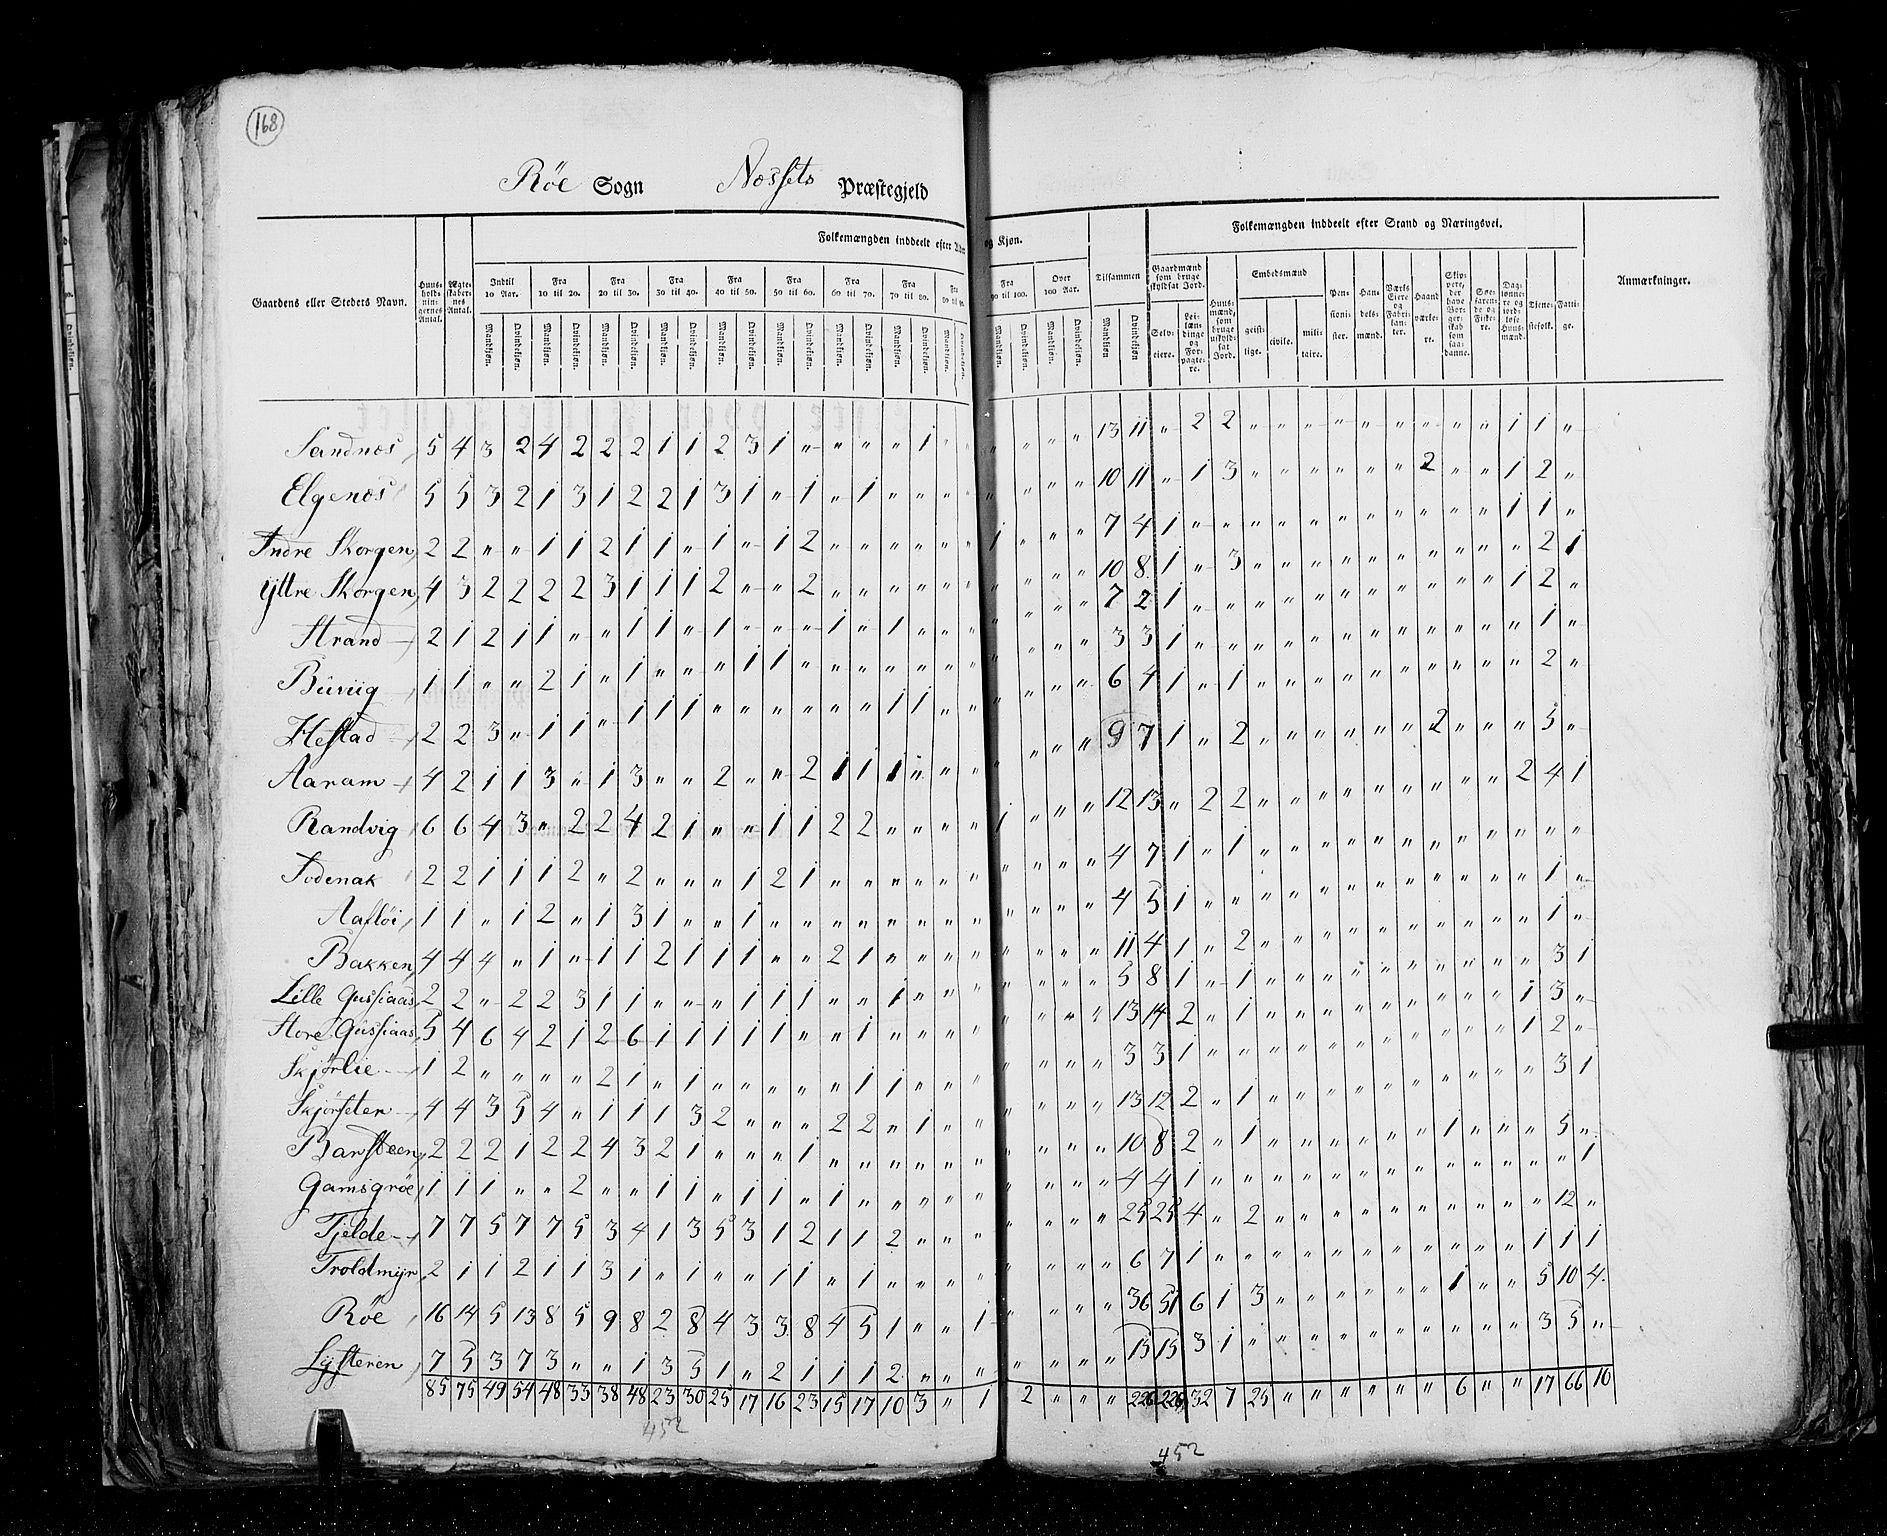 168
Röe Sogn Næssets Præstegjeld
Folkemængden inddeelt efter Alder og Kjøn. Folkemængden inddeelt efter Stand og Næringsvei.
Gaardens eller Steders Navn. Huusholdningernes Antal. Ægteskabernes Antal. Indtil 10 Aar. Fra 10 til 20. Fra 20 til 30. Fra 30 til 40. Fra 40 til 50. Fra 50 til 60. Fra 60 til 70. Fra 70 til 80. Fra 80 til 90. Fra 90 til 100. Over 100 Aar. Tilsammen Gaardmænd som bruge skyldsat Jord. Huusmænd, som bruge uskyldsat Jord. Embedsmænd Pensionister. Handelsmænd. Værks Eiere og Fabrikanter. Haandværkere. Skippere, der have Borgerskab som saadanne. Søefarende og Fiskere. Daglønnere og jordløse Huusmænd. Tienestefolk. Fattige. Anmærkninger.
Mandkjøn. Qvindekjøn. Mandkjøn. Qvindekjøn. Mandkjøn. Qvindekjøn. Mandkjøn. Qvindekjøn. Mandkjøn. Qvindekjøn. Mandkjøn. Qvindekjøn. Mandkjøn. Qvindekjøn. Mandkjøn. Qvindekjøn. Mandkjøn. Qvindekjøn. Mandkjøn. Qvindekjøn. Mandkjøn. Qvindekjøn. Mandkjøn Qvindekjøn Selveiere. Leilændinge og Forpagtere. geistlige. civile. militaire.
Sandnæs 5 4 3 2 4 2 2 2 1 1 2 3 1 " " " " 1 " " " " " " 13 11 " 2 2 " " " " " " " " " 1 1 "
Elgenæs 5 5 3 2 1 3 1 2 2 1 3 1 " 1 " 1 " " " " " " " " 10 11 " 1 3 " " " " " " 2 " " 1 2 "
Indre Skorgen 2 2 " " 1 1 2 1 1 " 1 " 1 2 " " " " " " 1 " " " 7 4 1 " " " " " " " " " " " 1 1 "
Yttre Skorgen 4 3 2 2 2 2 3 1 1 1 2 " " 2 " " " " " " " " " " 10 8 1 " 3 " " " " " " " " " " 2 1
Strand 2 1 2 1 1 " " 1 1 " 1 " " " 1 " 1 " " " " " " " 7 2 1 " " " " " " " " " " " 1 2 "
1 1 " " 2 1 " 1 " " " 1 1 " " " " " " " " " " " 3 3 1 " " " " " " " " " " " " 1 "
Hestad 2 2 3 " 1 1 " 1 1 1 " " " " " " 1 1 " " " " " " 6 4 1 " 1 " " " " " " " " " " 2 "
Aaram 4 2 1 1 3 " 1 3 " " 2 " " 2 1 1 1 " " " " " " " 9 7 1 " 2 " " " " " " 2 " " " 5 "
Randvig 6 6 4 3 " 2 2 4 2 1 " " 1 1 2 2 " " " " 1 " " " 12 13 " 2 2 " " " " " " " " " 2 4 1
Todenak 2 2 1 1 1 2 " 2 " " " 1 2 1 " " " " " " " " " " 4 7 1 " 1 " " " " " " " " " " " "
1 1 " 1 2 " 1 3 1 " " 1 " " " " " " " " " " " " 4 5 1 " " " " " " " " " " " " 1 "
Bakken 4 4 4 " 1 " 1 1 2 1 1 1 " " 2 1 " " " " " " " " 11 4 1 " 2 " " " " " " " " " " 1 "
Lille Gussiaas 2 2 " 2 2 3 1 1 " " " 1 1 1 " " 1 " " " " " " " 5 8 1 " 1 " " " " " " " " " " 3 1
Store Gussiaas 5 4 6 4 2 1 2 6 1 1 1 1 1 " " 1 " " " " " " " " 13 14 2 " 1 " " " " " " " " " 1 3 "
Skjørlie 1 2 " " " " 2 1 " 1 " " " " " 1 1 " " " " " " " 3 3 1 " " " " " " " " " " " 1 2 "
Skjørseter 4 4 3 5 4 " 1 1 1 3 2 " " " 2 2 " 1 " " " " " " 13 12 2 " 1 " " " " " " " " " " 3 1
Barsteen 2 2 2 1 2 2 4 3 2 1 " " " 1 " " " " " " " " " " 10 8 2 " 1 " " " " " " 1 " " " 5 "
Gamsgröe 1 1 1 " " 2 " " 1 1 " 1 1 " 1 " " " " " " " " " 4 4 1 " " " " " " " " " " " " " 1
Tjelde 7 7 5 7 7 5 3 4 1 3 5 3 1 2 1 1 2 " " " " " " " 25 25 4 " 2 " " " " " " " " " " 12 "
Troldmyr 2 1 1 2 1 1 3 1 " 1 " " 1 1 " 1 " " " " " " " " 6 7 1 " " " " " " " " " " " 1 1 1
Röe 16 14 5 13 8 5 9 8 2 8 4 3 3 8 4 5 1 " " 1 " " " " 36 51 6 1 3 " " " " " " 1 " " 5 10 4
Lysteren 7 5 3 7 3 " " 1 3 5 1 " 2 1 1 1 2 " " " " " " " 15 15 3 1 " " " " " " " " " " 3 5 "
85 75 49 54 48 33 38 48 23 30 25 17 16 23 15 17 10 3 " 1 2 " " " 226 226 32 7 25 " " " " " " 6 " " 17 66 10
452 452